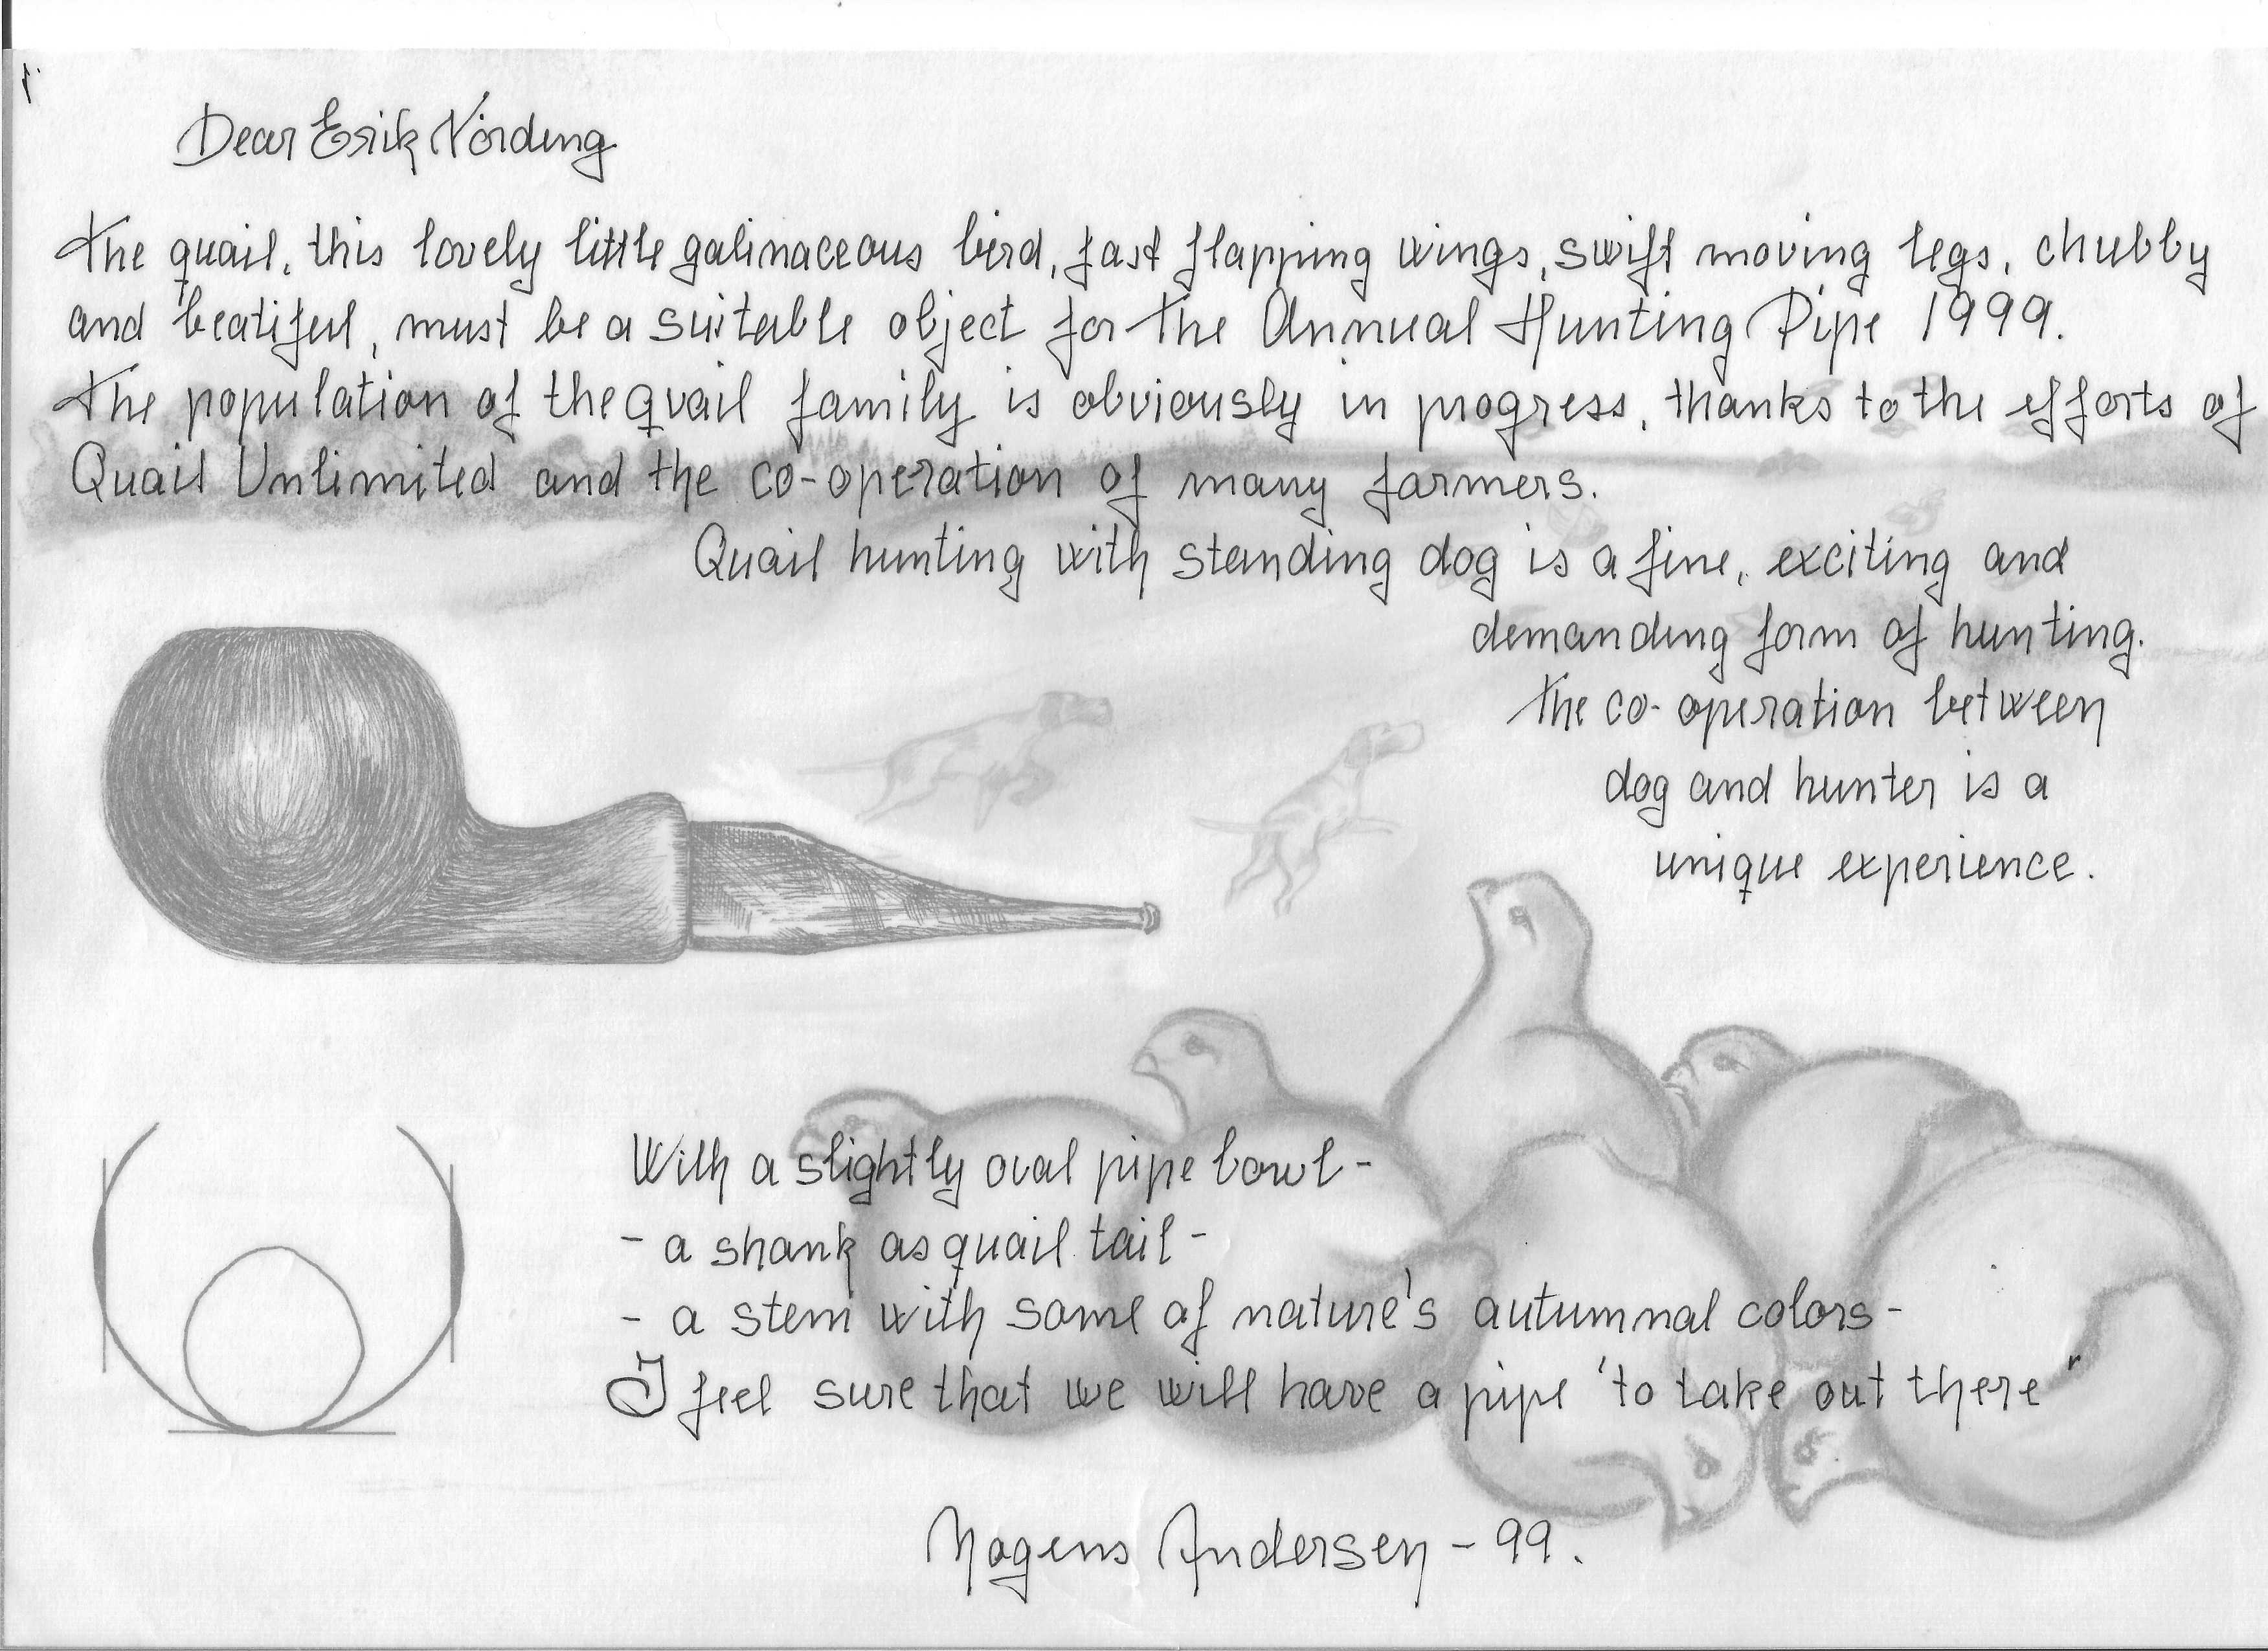 Dear Erik Nørding
The quail, this lovely little galinaceous bird, fast flapping wings, swift moving legs, chubby
and beatiful, must be a suitable object for the Annual Hunting Pipe 1999.
The population of the quail family is obviously in progress, thanks to the efforts of
Quail Unlimited and the co-operation of many farmers.
Quail hunting with standing dog is a fine, exciting and
demanding form of hunting.
The co-operation between
dog and hunter is a
unique experience.
With a slightly oval pipe bowl-
- a shank as quail tail-
- a stem with some of nature's autumnal colors-
I feel sure that we will have a pipe "to take out there"
Mogens Andersen - 99.